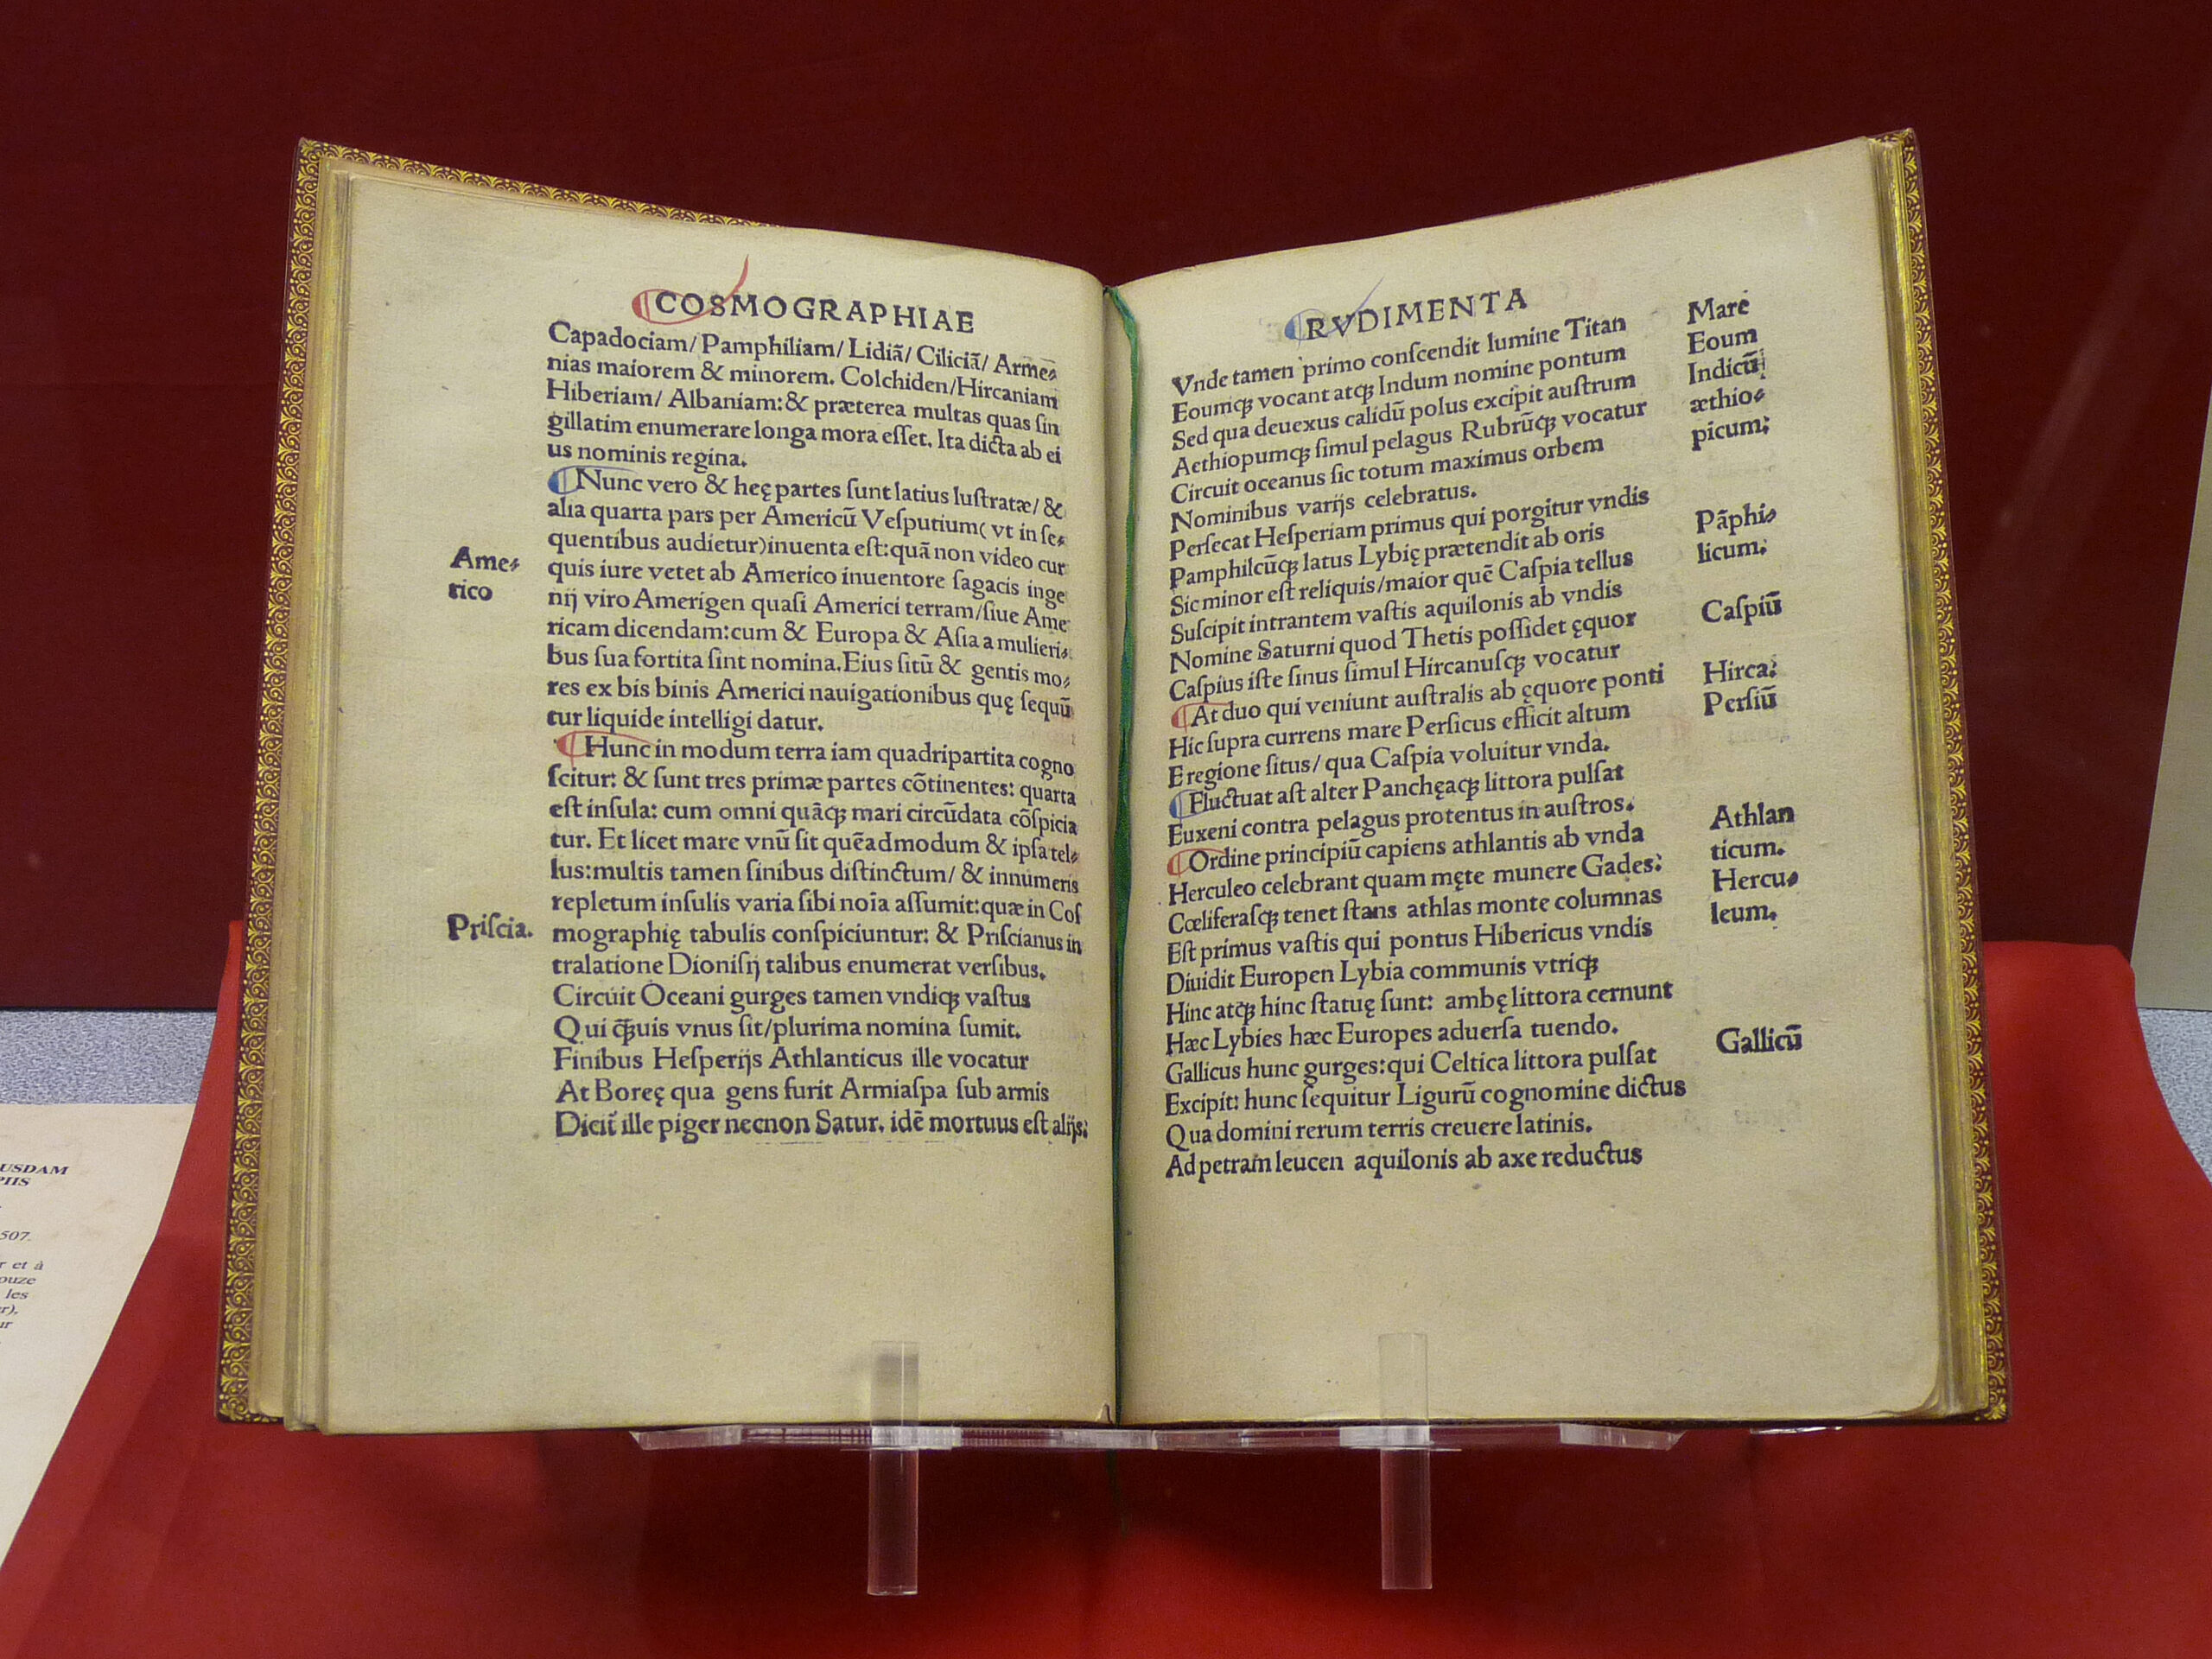 COSMOGRAPHIAE
Capadociam/ Pamphiliam/ Lidiã/ Ciliciã/ Arme⸗
nias maiorem & minorem. Colchiden/Hircaniam
Hiberiam/ Albaniam:& præterea multas quas ſin
gillatim enumerare longa mora eſſet. Ita dicta ab ei
us nominis regina.
¶Nunc vero & heę partes ſunt latius luſtratæ/ &
alia quarta pars per Americũ Veſputium( vt in ſe⸗
quentibus audietur)inuenta eſt:quã non video cur
Ame⸗
rico
quis iure vetet ab Americo inuentore ſagacis inge
nij viro Amerigen quaſi Americi terram/ſiue Ame
ricam dicendam:cum & Europa & Aſia a mulieri⸗
bus ſua ſortita ſint nomina.Eius ſitũ & gentis mo⸗
res ex bis binis Americi nauigationibus quę ſequũ
tur liquide intelligi datur.
¶Hunc in modum terra iam quadripartita cogno
ſcitur: & ſunt tres primæ partes cõtinentes: quarta
eſt inſula: cum omni quãqꝫ mari circũdata cõſpicia
tur. Et licet mare vnũ ſit quẽadmodum & ipſa tel⸗
lus:multis tamen ſinibus diſtinctum/ & innumeris
repletum inſulis varia ſibi noĩa aſſumit:quæ in Coſ
Priſcia.
mographię tabulis conſpiciuntur: & Priſcianus in
tralatione Dioniſij talibus enumerat verſibus.
Circuit Oceani gurges tamen vndiqꝫ vaſtus
Qui q̃ꝫuis vnus ſit/plurima nomina ſumit.
Finibus Heſperijs Athlanticus ille vocatur
At Boreę qua gens furit Armiaſpa ſub armis
Dicit̃ ille piger necnon Satur. idẽ mortuus eſt alijs:
¶RVDIMENTA
Vnde tamen primo conſcendit lumine Titan
Eoumqꝫ vocant atqꝫ Indum nomine pontum
Sed qua deuexus calidũ polus excipit auſtrum
Aethiopumqꝫ ſimul pelagus Rubrũqꝫ vocatur
Circuit oceanus ſic totum maximus orbem
Nominibus varijs celebratus.
Perſecat Heſperiam primus qui porgitur vndis
Pamphilcũqꝫ latus Lybię prætendit ab oris
Sic minor eſt reliquis/maior quẽ Caſpia tellus
Suſcipit intrantem vaſtis aquilonis ab vndis
Nomine Saturni quod Thetis poſſidet ęquor
Caſpius iſte ſinus ſimul Hircanuſqꝫ vocatur
¶At duo qui veniunt auſtralis ab ęquore ponti
Hic ſupra currens mare Perſicus efficit altum
E regione ſitus/ qua Caſpia voluitur vnda.
¶Fluctuat aſt alter Panchęaqꝫ littora pulſat
Euxeni contra pelagus protentus in auſtros.
¶Ordine principiũ capiens athlantis ab vnda
Herculeo celebrant quam męte munere Gades:
Cœliferaſqꝫ tenet ſtans athlas monte columnas
Eſt primus vaſtis qui pontus Hibericus vndis
Diuidit Europen Lybia communis vtriqꝫ
Hinc atqꝫ hinc ſtatuę ſunt: ambę littora cernunt
Hæc Lybies hæc Europes aduerſa tuendo.
Gallicus hunc gurges:qui Celtica littora pulſat
Excipit: hunc ſequitur Ligurũ cognomine dictus
Qua domini rerum terris creuere latinis.
Ad petram leucen aquilonis ab axe reductus
Mare
Eoum
Indicũ
æthio⸗
picum:
Pãphi⸗
licum:
Caſpiũ
Hirca:
Perſiũ
Athlan
ticum.
Hercu⸗
leum.
Gallicũ
USDAM
PIIS
507.
r et à
ouze
les
r),
ur